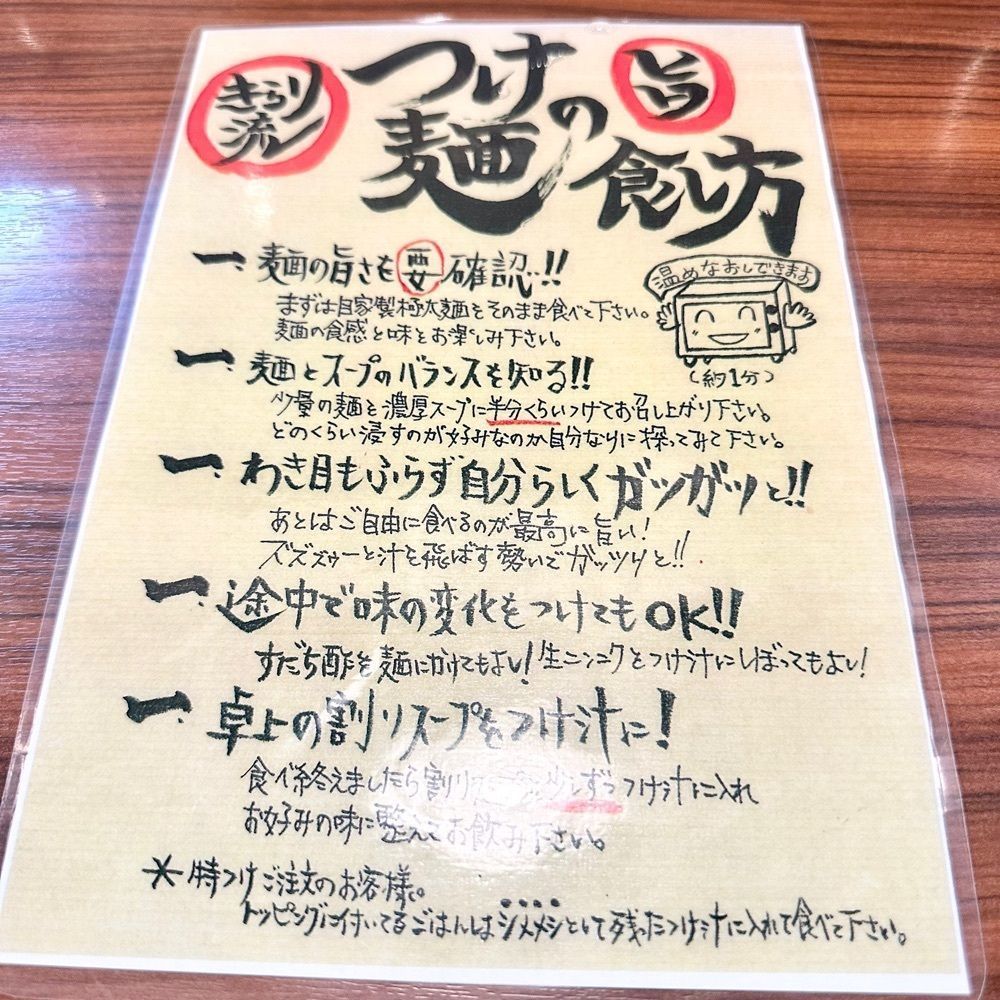 きらり流
つけ麺の食し方
旨
一、麺の旨さを要確認!!
まずは自家製極太麺をそのまま食べて下さい。
麺の食感と味をお楽しみ下さい。
温めなおしできます
(約1分)
一、麺とスープのバランスを知る!!
少量の麺を濃厚スープに半分くらいつけてお召し上がり下さい。
どのくらい浸すのが好みなのか自分なりに探ってみて下さい。
一、わき目もふらず自分らしくガツガツと!!
あとはご自由に食べるのが最高に旨い!
ズズズゥーと汁を飛ばす勢いでガッツリと!!
一、途中で味の変化をつけてもOK!!
すだち酢を麺にかけてもよし!生ニンニクをつけ汁にしぼってもよし!
一、卓上の割りスープをつけ汁に!
食べ終えましたら割り 少しずつつけ汁に入れ
お好みの味に整えてお飲み下さい。
*特つけご注文のお客様。
トッピングに付いてるごはんはシメメシとして残ったつけ汁に入れて食べて下さい。